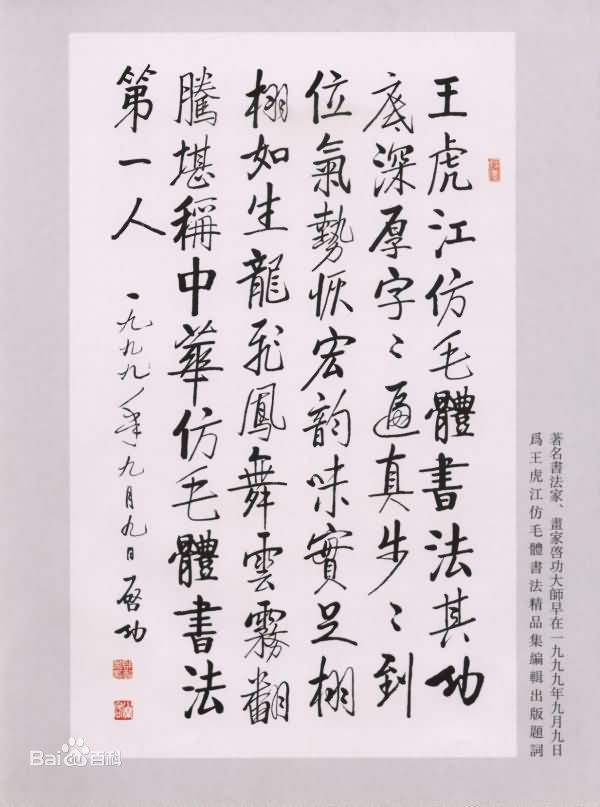 王虎江仿毛體書法其功
底深厚字〻遍真步〻到
位氣勢恢宏韵味實足栩
栩如生龍飛鳳舞雲霧翻
騰堪稱中華仿毛體書法
第一人
一九九九年九月九日 啓功
著名書法家、畫家啓功大師早在一九九九年九月九日
爲王虎江仿毛體書法精品集編輯出版題詞
Bai百科